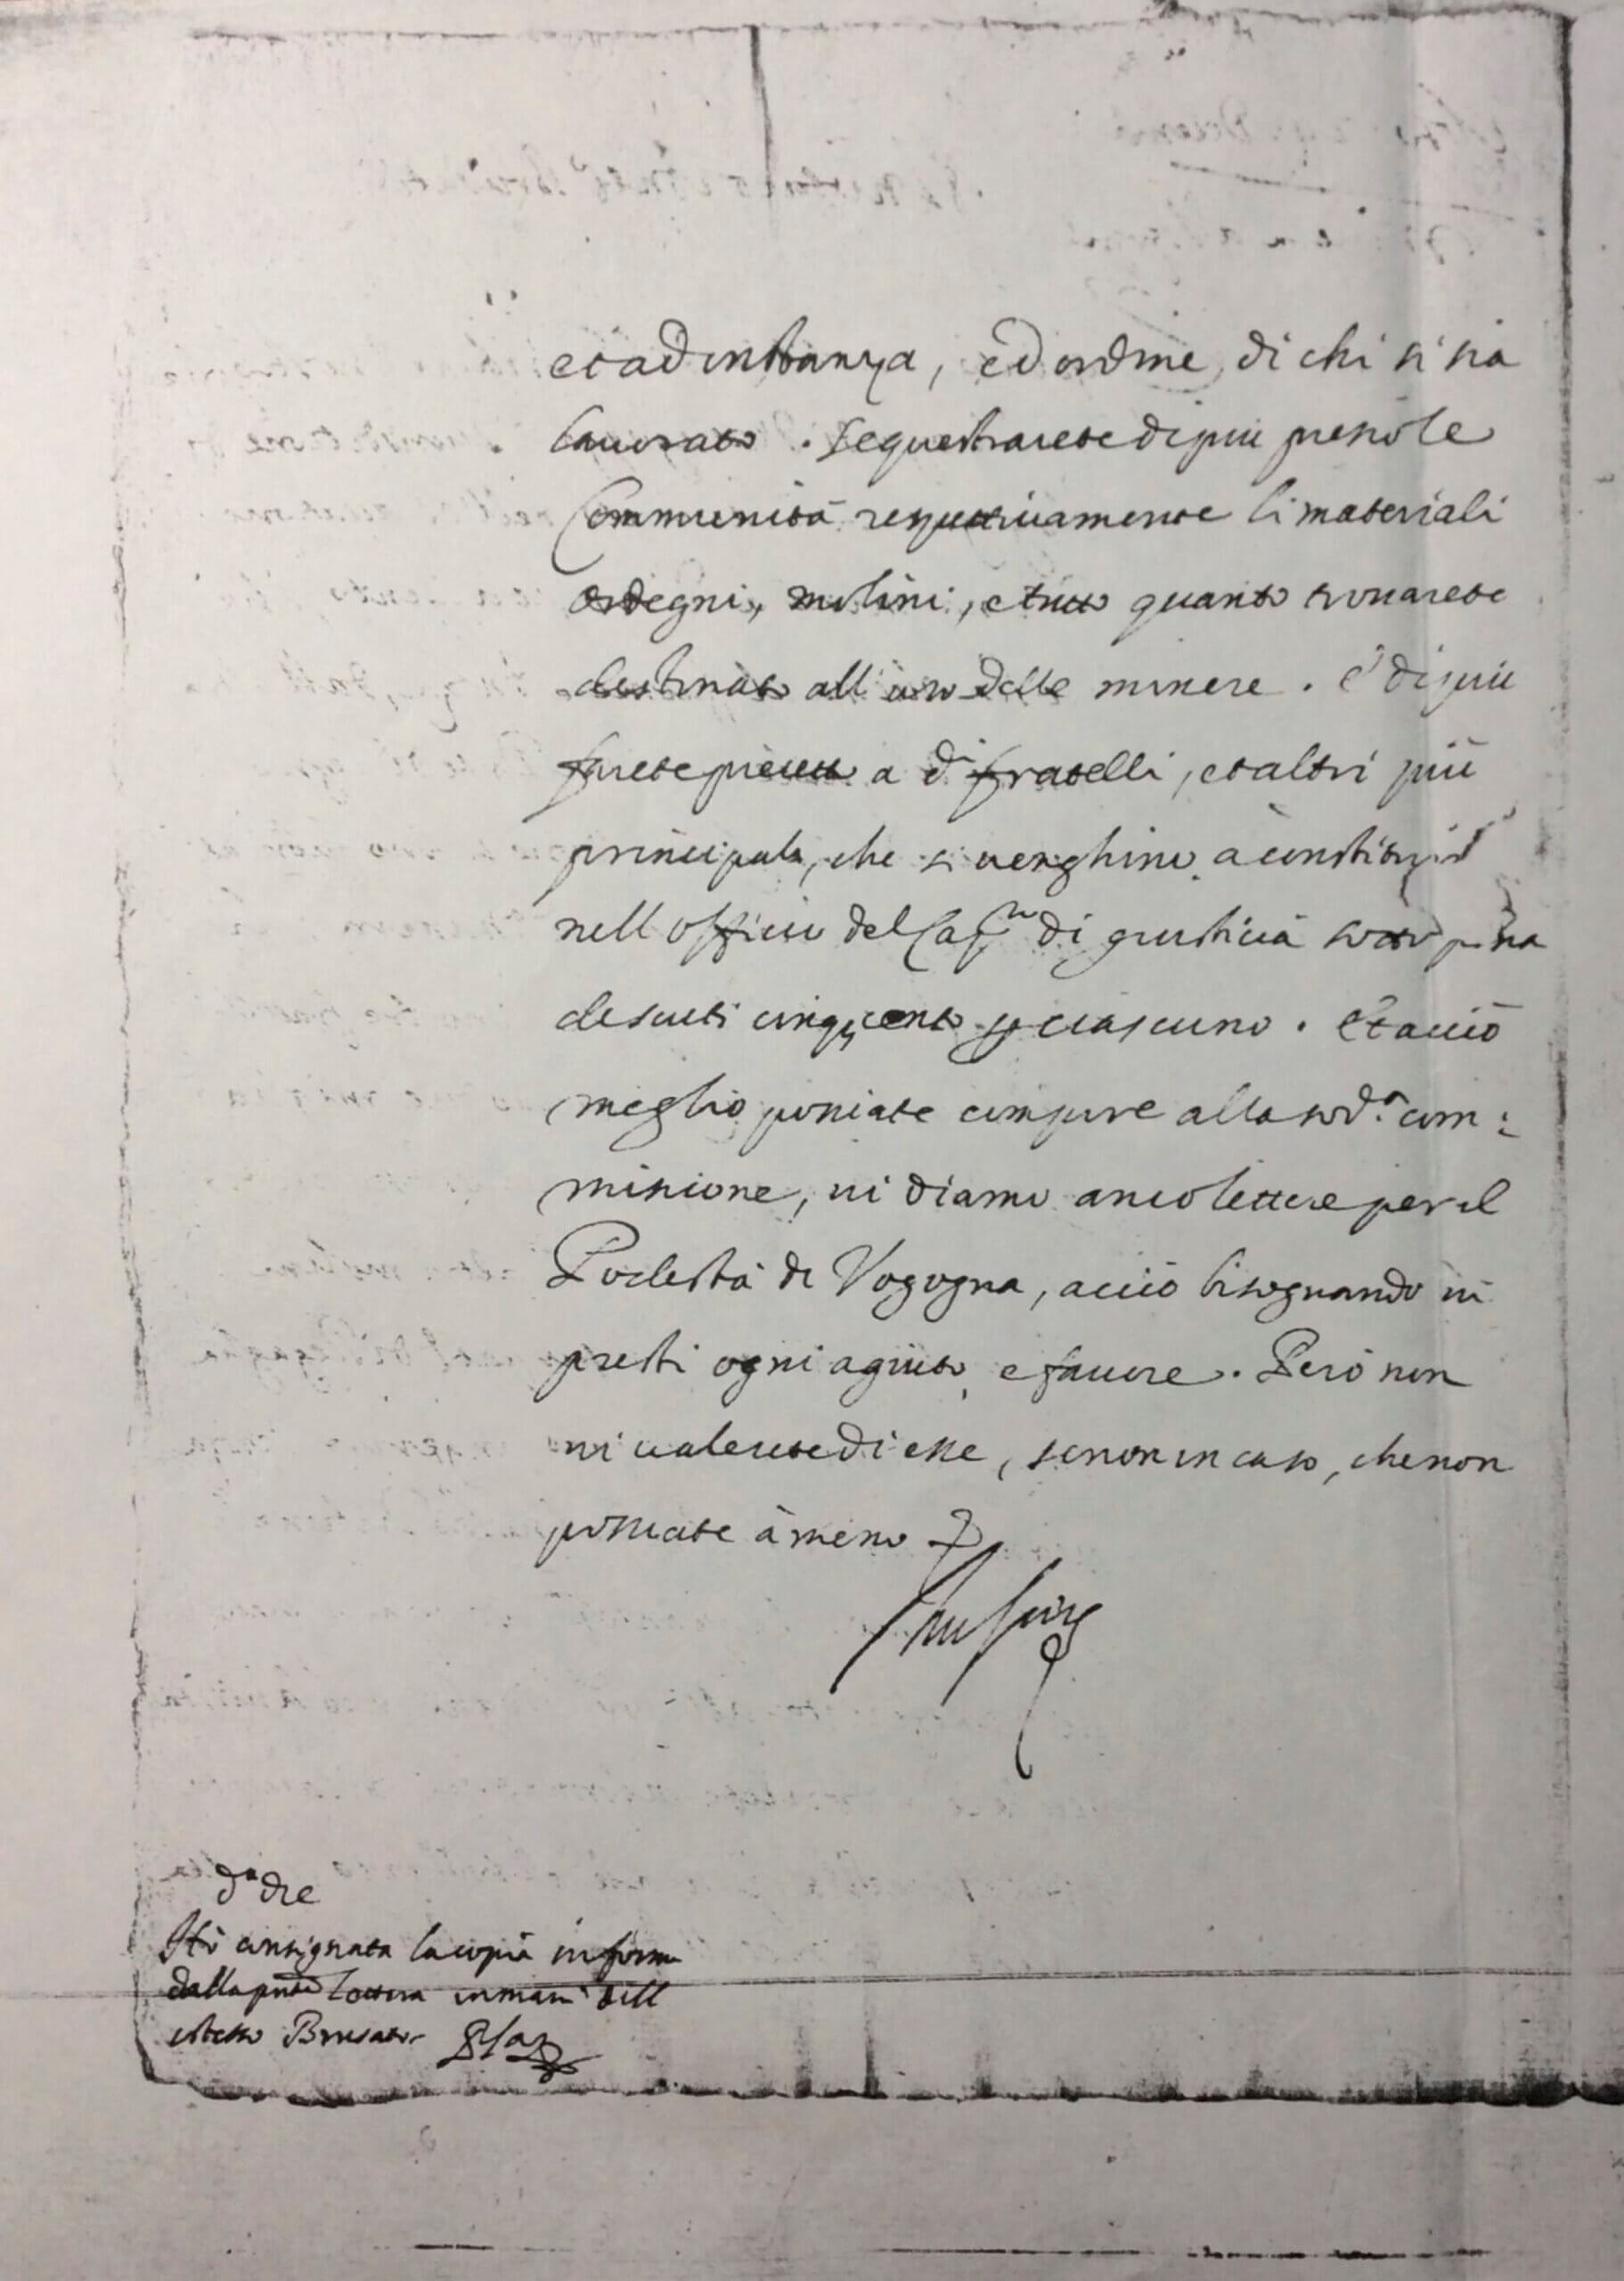 et ad instanza, ed ordine di chi si sia
lauorato. Sequestrarete di più presso le
Communità respettiuamente li materiali
ordegni, molini, e tutto quanto trouarete
destinato all'uso delle minere. E di più
farete precetto a d.i fratelli, et altri più
principali, che si uenghino à constituir
nell officio del Cap.no di giusticia sotto pena
de scuti cinquecento p ciascuno. Et acciò
meglio possiate compire alla sod.a com:
missione, ui diamo anco lettere per il
Podestà di Vogogna, acciò bisognando ui
presti ogni agiuto, e fauore. Però non
ui ualerete di esse, se non in caso, che non
possiate à meno
d.a die
Hò consignata la copia in forma
della pnte lettera in mani dell
istesso Brusato